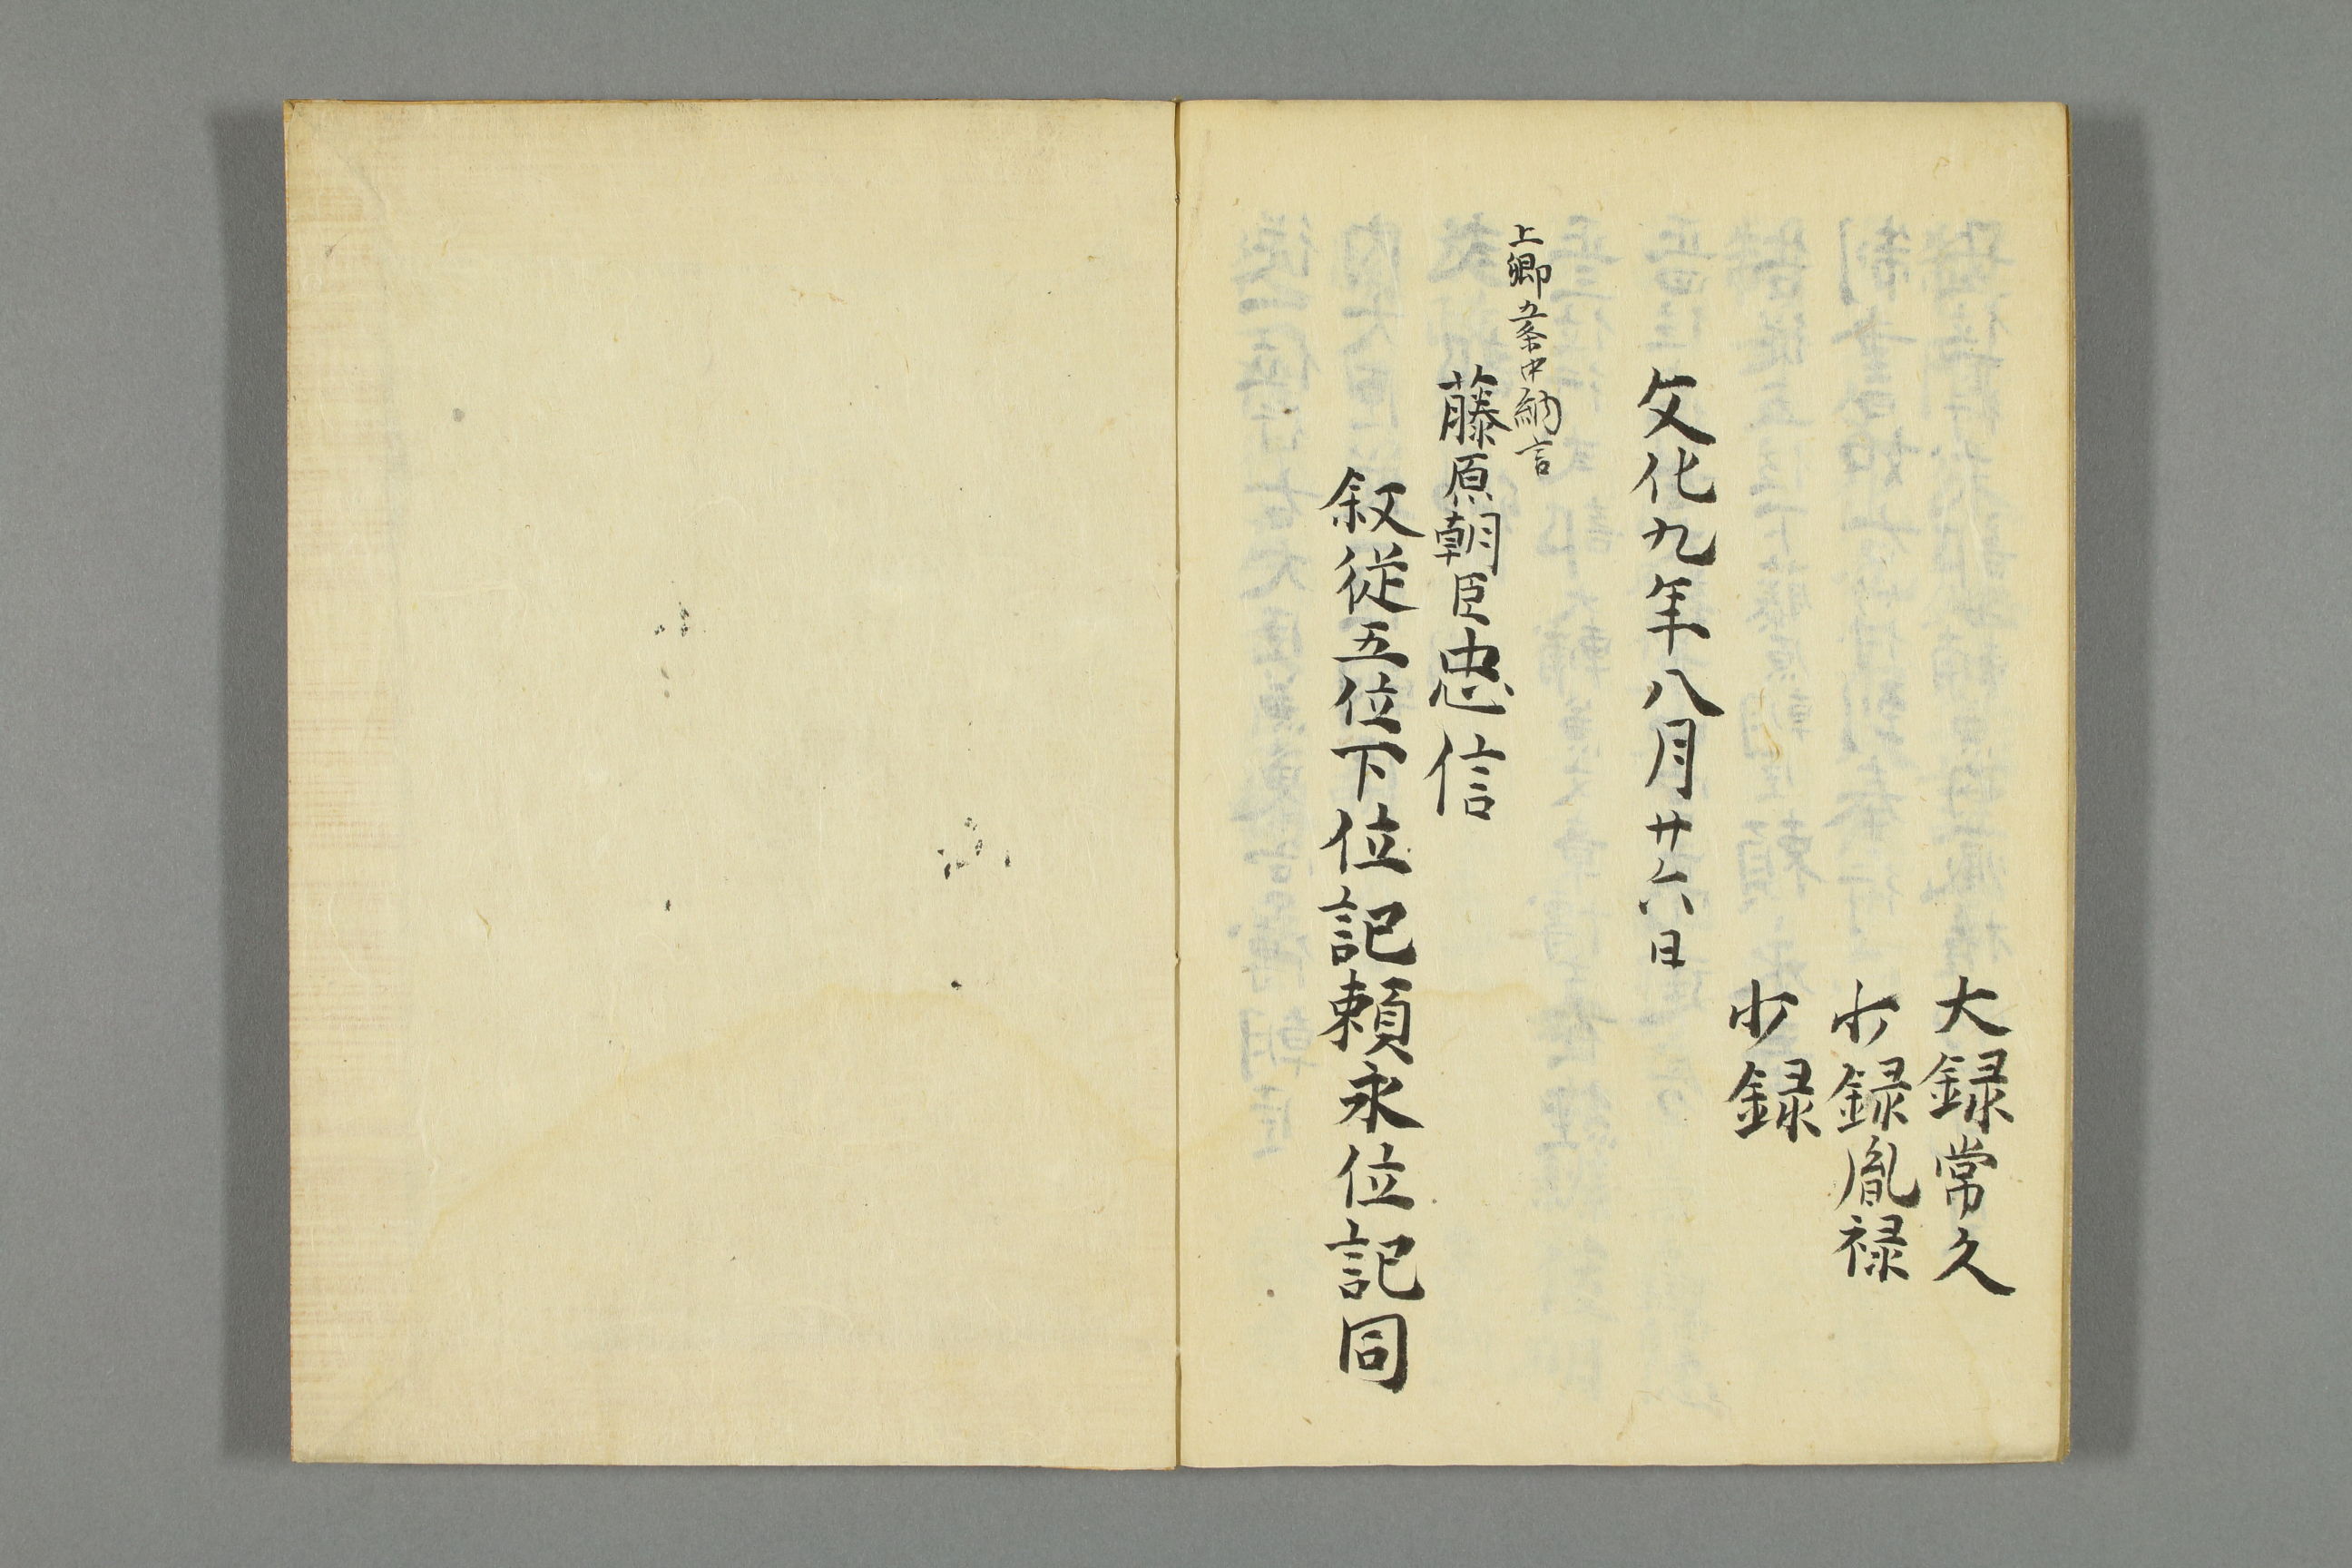 大録常久
少録胤禄
少録
文化九年八月廿六日
上卿五条中納言
藤原朝臣忠信
叙従五位下位記頼永位記同